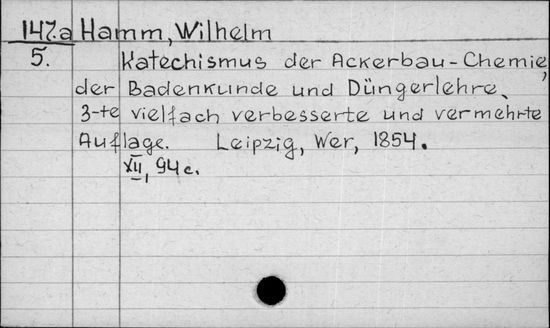 147.a Hamm, Wilhelm
5. Katechismus der Ackerbau-Chemie,
der Badenkunde und Düngerlehre.
3-te vielfach verbesserte und vermehrte
Auflage. Leipzig, Wer, 1854.
XII, 94 c.